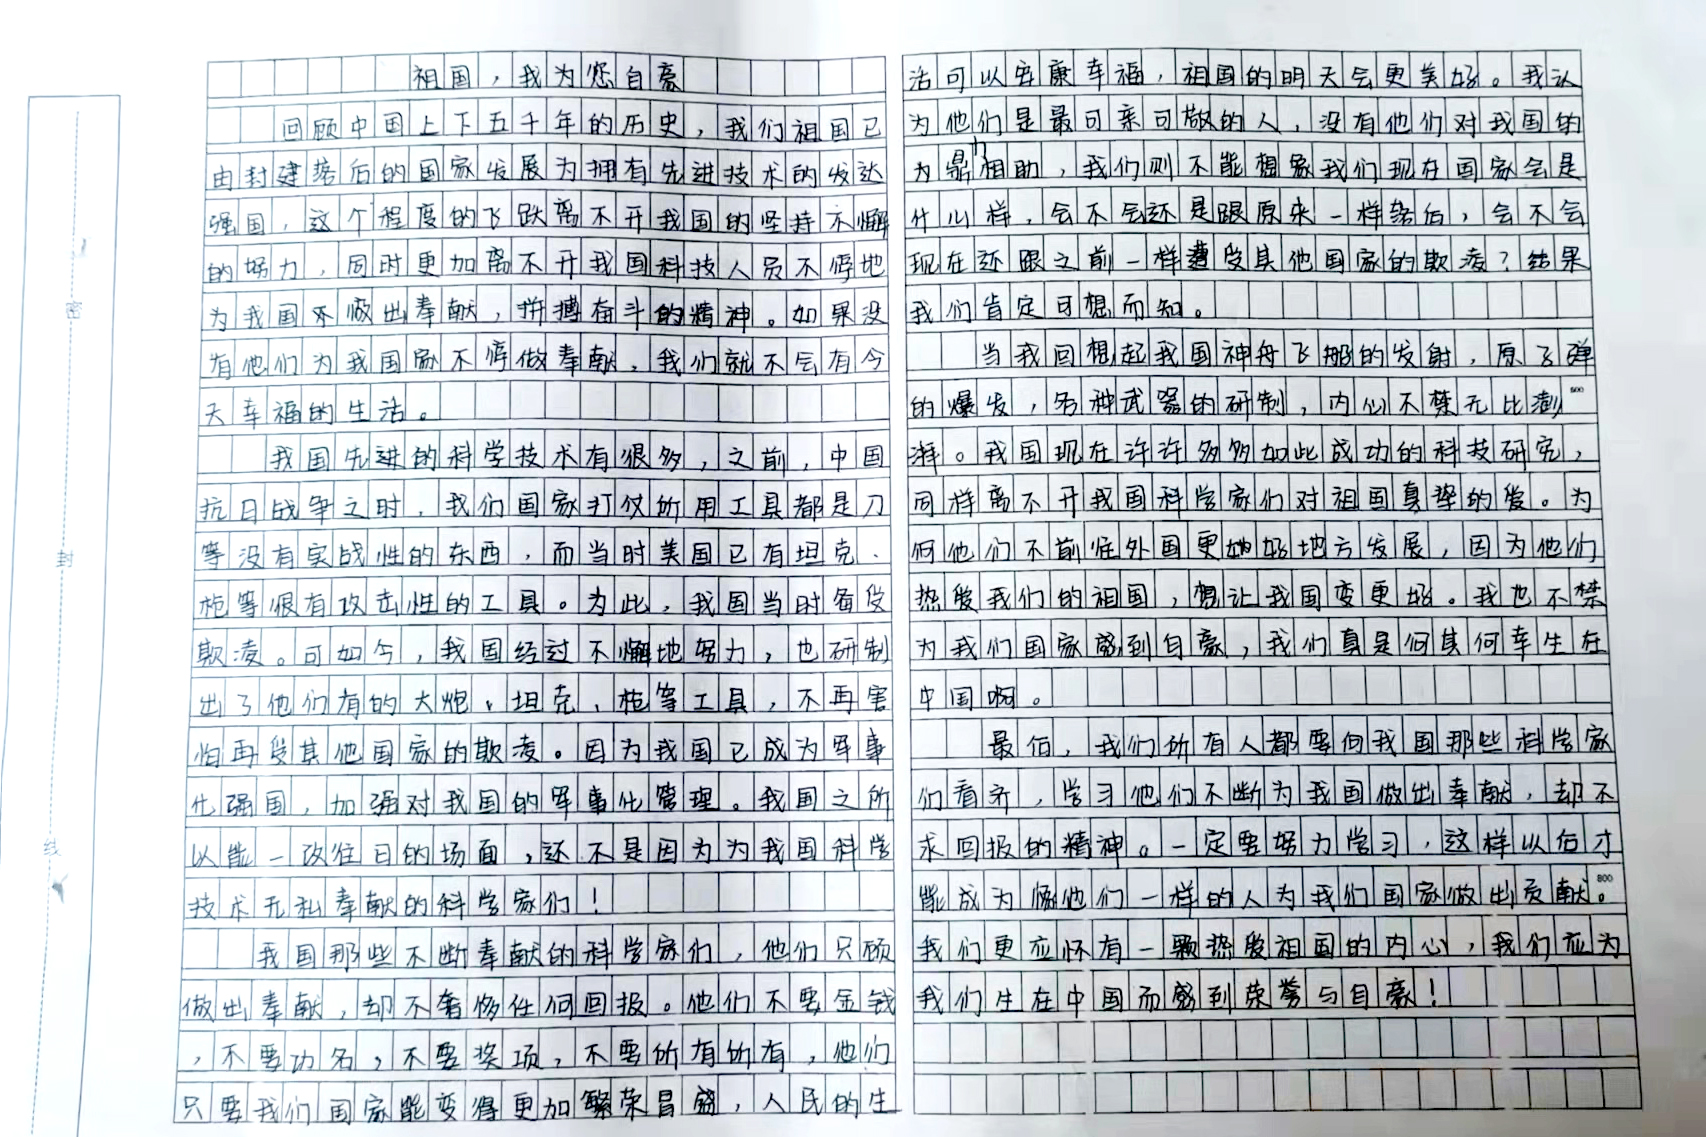 祖国，我为您自豪
回顾中国上下五千年的历史，我们祖国已
由封建落后的国家发展为拥有先进技术的发达
强国，这个程度的飞跃离不开我国的坚持不懈
的努力，同时更加离不开我国科技人员不停地
为我国不做出奉献，拼搏奋斗的精神。如果没
有他们为我国家不停做奉献，我们就不会有今
天幸福的生活。
我国先进的科学技术有很多，之前，中国
抗日战争之时，我们国家打仗所用工具都是刀
等没有实战性的东西，而当时美国已有坦克、
枪等很有攻击性的工具。为此，我国当时备受
欺凌。可如今，我国经过不懈地努力，也研制
出了他们有的大炮、坦克、枪等工具，不再害
怕再受其他国家的欺凌。因为我国已成为军事
化强国，加强对我国的军事化管理。我国之所
以能一改往日的场面，还不是因为为我国科学
技术无私奉献的科学家们！
我国那些不断奉献的科学家们，他们只顾
做出奉献，却不奢侈任何回报。他们不要金钱
，不要功名，不要奖项，不要所有所有，他们
只要我们国家能变得更加繁荣昌盛，人民的生
活可以安康幸福，祖国的明天会更美好。我认
为他们是最可亲可敬的人，没有他们对我国的
为鼎力相助，我们则不能想象我们现在国家会是
什么样，会不会还是跟原来一样落后，会不会
现在还跟之前一样遭受其他国家的欺凌？结果
我们肯定可想而知。
当我回想起我国神舟飞船的发射，原子弹
的爆发，各种武器的研制，内心不禁无比澎
600
湃。我国现在许许多多如此成功的科技研究，
同样离不开我国科学家们对祖国真挚的爱。为
何他们不前往外国更好地方发展，因为他们
热爱我们的祖国，想让我国变更好。我也不禁
为我们国家感到自豪，我们真是何其何幸生在
中国啊。
最后，我们所有人都要向我国那些科学家
们看齐，学习他们不断为我国做出奉献，却不
求回报的精神。一定要努力学习，这样以后才
能成为像他们一样的人为我们国家做出贡献。
800
我们更应怀有一颗热爱祖国的内心，我们应为
我们生在中国而感到荣誉与自豪！
密
封
线